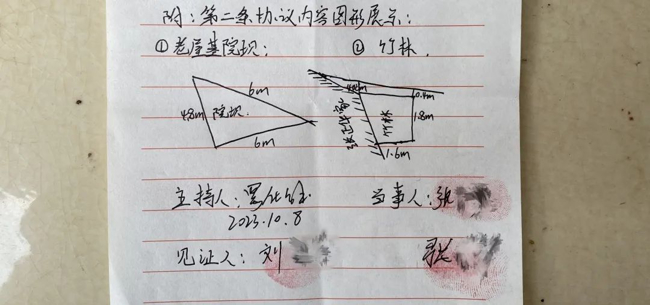 附：第二条协议内容图形展示：
①老屋基院坝：
②竹林.
6m
4.8m
院坝.
6m
0.4m
竹林
1.8m
1.6m
主持人：
当事人：张
2023.10.8
见证人：刘
张